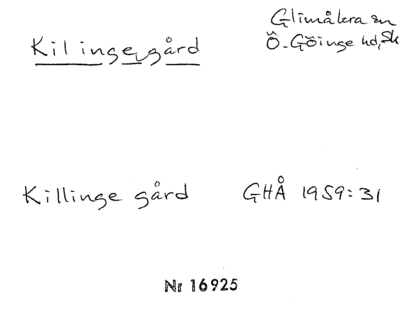 Kilingegård
Glimåkra sn
Ö. Göinge hd, Sk
Killinge gård GHÅ 1959:31
Nr 16925